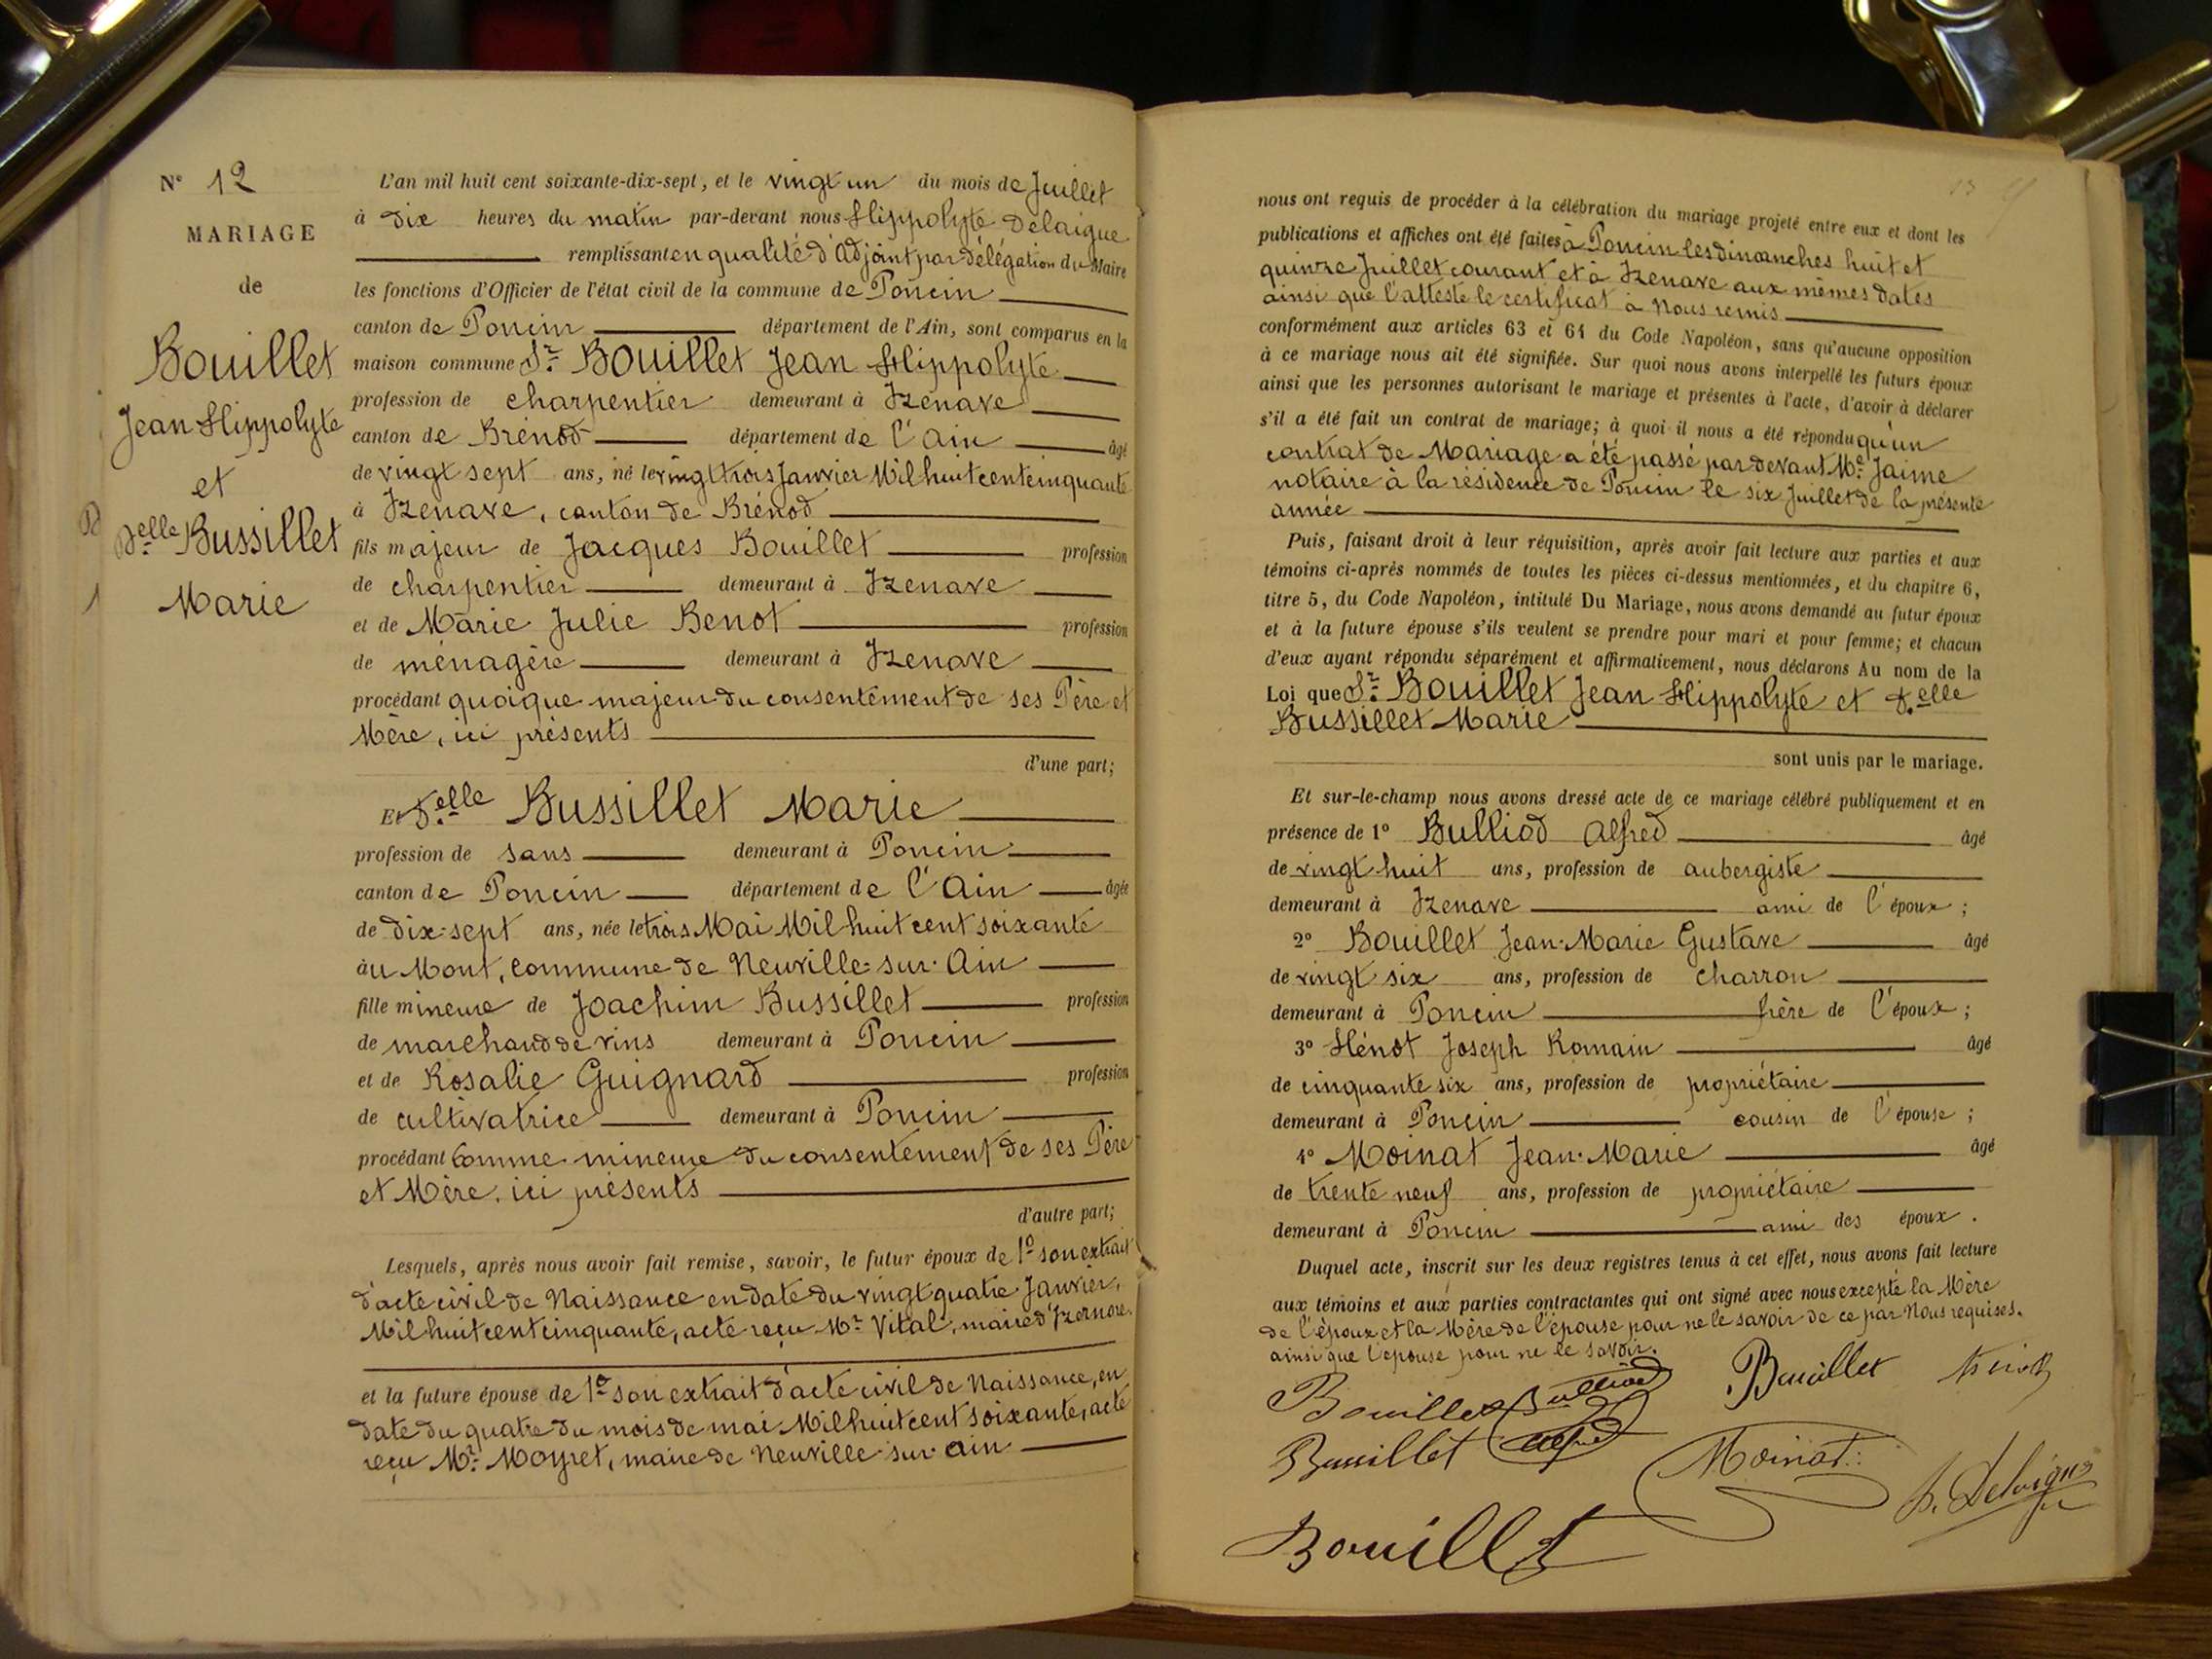 N° 12
MARIAGE
de
Bouillet
Jean Hippolyte
et
Delle Bussillet
Marie
L'an mil huit cent soixante-dix-sept, et le vingt un du mois de Juillet
à dix heures du matin par-devant nous Hippolyte Delaigue
remplissant en qualité d'Adjoint par délégation du Maire
les fonctions d'Officier de l'état civil de la commune de Poncin
canton de Poncin département de l'Ain, sont comparus en la
maison commune Sr Bouillet Jean Hippolyte
profession de charpentier demeurant à Izenave
canton de Brénod département de l'Ain âgé
de vingt sept ans, né le vingt trois Janvier Mil huit cent cinquante
à Izenave, canton de Brénod
fils majeur de Jacques Bouillet profession
de charpentier demeurant à Izenave
et de Marie Julie Benot profession
de ménagère demeurant à Izenave
procédant quoique majeur du consentement de ses Père et
Mère, ici présents
d'une part;
Et Delle Bussillet Marie
profession de sans demeurant à Poncin
canton de Poncin département de l'Ain âgée
de dix-sept ans, née le trois Mai Mil huit cent soixante
au Mont, commune de Neuville-sur-Ain
fille mineure de Joachim Bussillet profession
de marchand de vins demeurant à Poncin
et de Rosalie Guignard profession
de cultivatrice demeurant à Poncin
procédant comme mineure du consentement de ses Père
et Mère, ici présents
d'autre part;
Lesquels, après nous avoir fait remise, savoir, le futur époux de 1° son extrait
d'acte civil de Naissance en date du vingt quatre Janvier,
Mil huit cent cinquante, acte reçu Mr Vital, maire d'Izernore.
et la future épouse de 1° son extrait d'acte civil de Naissance, en
date du quatre du mois de mai Mil huit cent soixante, acte
reçu Mr Moyret, maire de Neuville-sur-Ain
nous ont requis de procéder à la célébration du mariage projeté entre eux et dont les
publications et affiches ont été faites à Poncin les dimanches huit et
quinze Juillet courant et à Izenave aux mêmes dates
ainsi que l'atteste le certificat à Nous remis
conformément aux articles 63 et 64 du Code Napoléon, sans qu'aucune opposition
à ce mariage nous ait été signifiée. Sur quoi nous avons interpellé les futurs époux
ainsi que les personnes autorisant le mariage et présentes à l'acte, d'avoir à déclarer
s'il a été fait un contrat de mariage; à quoi il nous a été répondu qu'un
contrat de Mariage a été passé par devant Me Jaime
notaire à la résidence de Poncin le six Juillet de la présente
année
Puis, faisant droit à leur réquisition, après avoir fait lecture aux parties et aux
témoins ci-après nommés de toutes les pièces ci-dessus mentionnées, et du chapitre 6,
titre 5, du Code Napoléon, intitulé Du Mariage, nous avons demandé au futur époux
et à la future épouse s'ils veulent se prendre pour mari et pour femme; et chacun
d'eux ayant répondu séparément et affirmativement, nous déclarons Au nom de la
Loi que Sr Bouillet Jean Hippolyte et Delle
Bussillet Marie
sont unis par le mariage.
Et sur-le-champ nous avons dressé acte de ce mariage célébré publiquement et en
présence de 1° Bulliod Alfred âgé
de vingt huit ans, profession de aubergiste
demeurant à Izenave ami de l'époux;
2° Bouillet Jean-Marie Gustave âgé
de vingt six ans, profession de charron
demeurant à Poncin frère de l'époux;
3° Hénot Joseph Romain âgé
de cinquante six ans, profession de propriétaire
demeurant à Poncin cousin de l'épouse;
4° Moinat Jean-Marie âgé
de trente neuf ans, profession de propriétaire
demeurant à Poncin ami des époux.
Duquel acte, inscrit sur les deux registres tenus à cet effet, nous avons fait lecture
aux témoins et aux parties contractantes qui ont signé avec nous excepté la Mère
de l'époux et la Mère de l'épouse pour ne le savoir de ce par Nous requises.
ainsi que l'épouse pour ne le savoir.
Bouillet Bulliod Bouillet
Bussillet Alfred Moinat
h. Delaigue
Bouillet